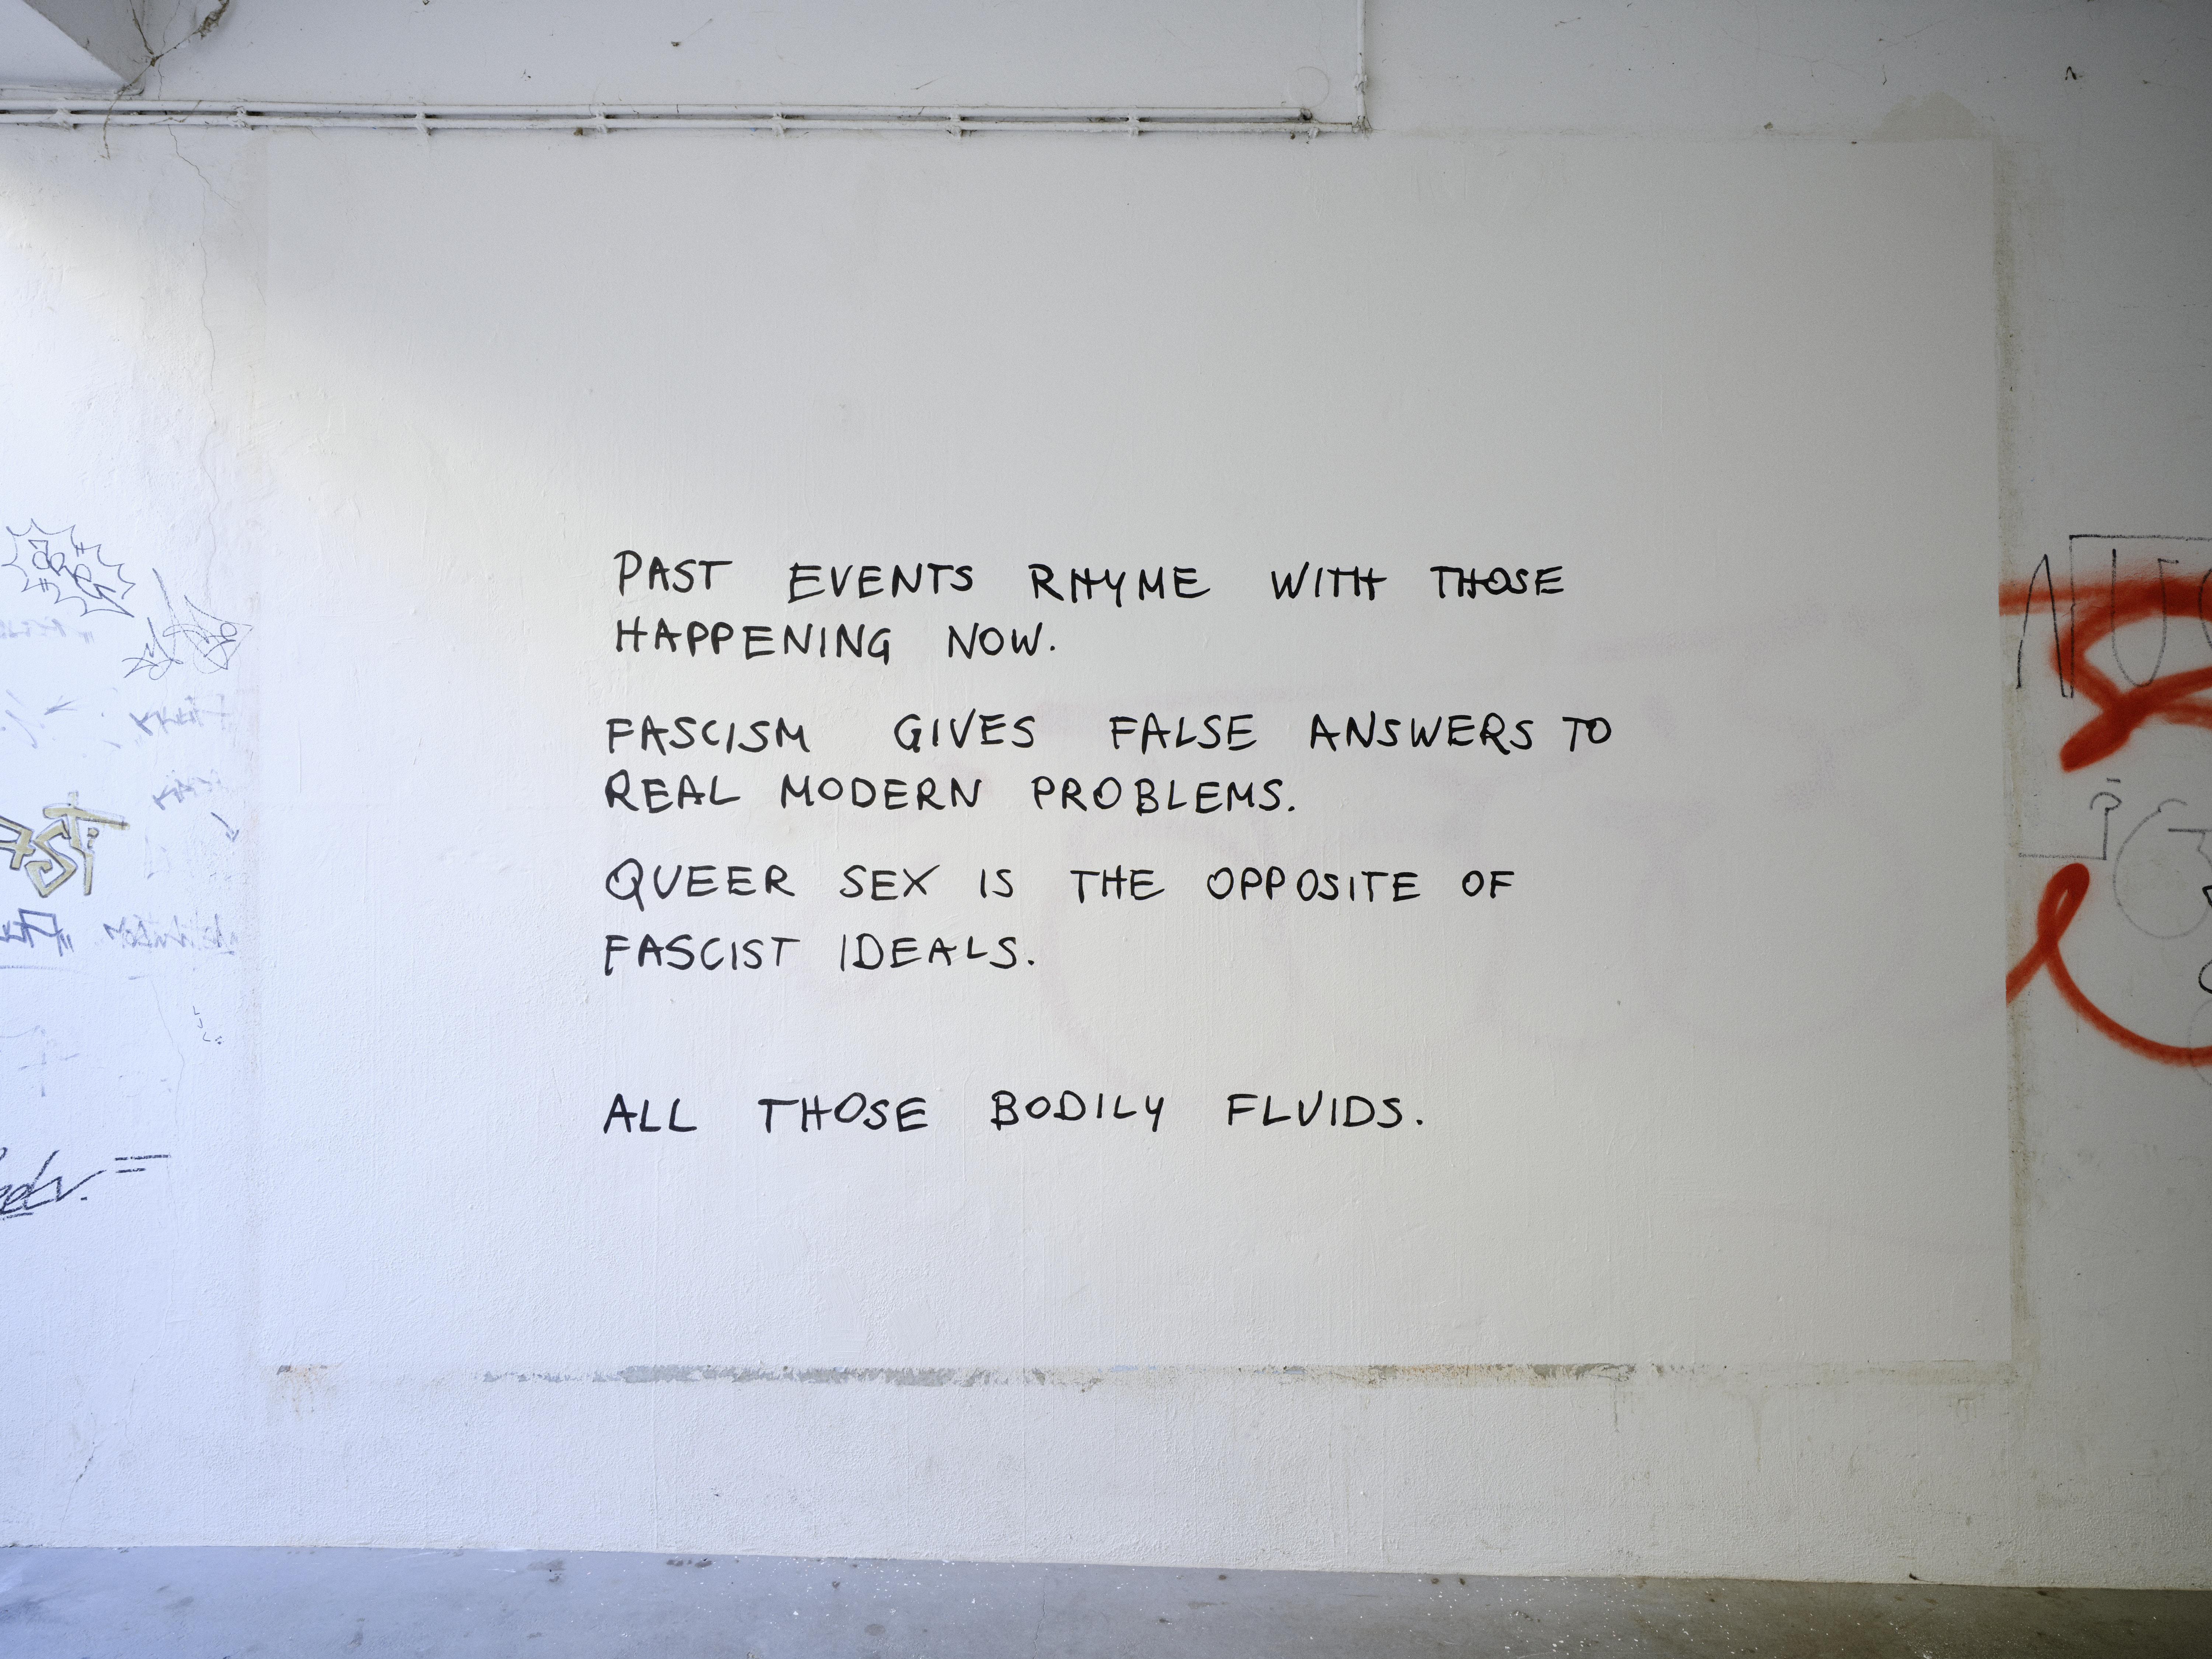 PAST EVENTS RHYME WITH THOSE
HAPPENING NOW.
FASCISM GIVES FALSE ANSWERS TO
REAL MODERN PROBLEMS.
QUEER SEX IS THE OPPOSITE OF
FASCIST IDEALS.
ALL THOSE BODILY FLUIDS.